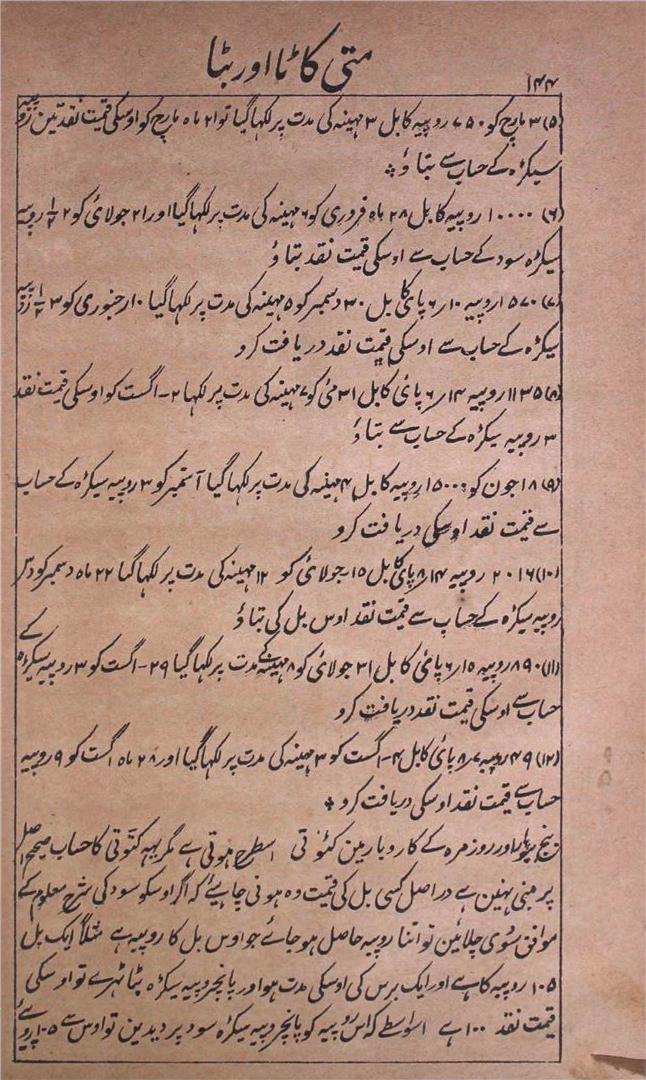 متی کاٹا اور بٹا
۱۴۴
(۵) ۳ مارچ کو ۷۵۰ روپیہ کا بل ۳ مہینہ کی مدت پر لکھا گیا تو ۲۱ ماہ مارچ کو اوسکی قیمت نقد تین روپیہ
سیکڑہ کے حساب سے بتاؤ *
(۶) ۱۰۰۰۰ روپیہ کا بل ۲۸ ماہ فروری کو ۶ مہینہ کی مدت پر لکھا گیا اور ۲۱ جولائی کو ۲ ۱/۲ روپیہ
سیکڑہ سود کے حساب سے اوسکی قیمت نقد بتاؤ
(۷) ۵۷۰ روپیہ ۱۰ر ۶ پائی کا بل ۳۰ دسمبر کو ۵ مہینہ کی مدت پر لکھا گیا ۱۰ر جنوری کو ۳ ۱/۲ روپیہ
سیکڑہ کے حساب سے اوسکی قیمت نقد دریافت کرو
(۸) ۱۱۳۵ روپیہ ۱۴ر ۶ پائی کا بل ۳۱ مئی کو ۷ مہینہ کی مدت پر لکھا ۲- اگست کو اوسکی قیمت نقد
۳ روپیہ سیکڑہ کے حساب سے بتاؤ
(۹) ۱۸ جون کو ۱۵۰۰ روپیہ کا بل ۴ مہینہ کی مدت پر لکھا گیا ستمبر کو ۳ روپیہ سیکڑہ کے حساب
سے قیمت نقد اوسکی دریافت کرو
(۱۰) ۲۰۱۶ روپیہ ۱۴ر ۸ پائی کا بل ۱۵- جولائی کو ۱۲ مہینہ کی مدت پر لکھا گیا ۲۲ ماہ دسمبر کو دس
روپیہ سیکڑہ کے حساب سے قیمت نقد اوس بل کی بتاؤ
(۱۱) ۸۹۰ روپیہ ۱۵ر ۶ پائی کا بل ۳۱ جولائی کو ۸ مہینہ کے مدت پر لکھا گیا ۲۹- اگست کو ۳ روپیہ سیکڑہ کے
حساب سے اوسکی قیمت نقد دریافت کرو
(۱۲) ۴۹ روپیہ ۷ر ۸ پائی کا بل ۴- اگست کو ۳ مہینہ کی مدت پر لکھا گیا اور ۲۸ ماہ اگست کو ۹ روپیہ
حساب سے قیمت نقد اوسکی دریافت کرو *
بنج بیوپار اور روزمرہ کے کاروبار مین کٹوتی اسطرح ہوتی ہے مگر یہہ کٹوتی کا حساب صحیح اصل
پر مبنی نہین ہے دراصل کسی بل کی قیمت وہ ہونی چاہیئے کہ اگر اوسکو سود کی شرح معلوم کے
موافق سودی چلائین تو اتنا روپیہ حاصل ہو جائے جو اوس بل کا روپیہ ہے مثلاً ایک بل
۱۰۵ روپیہ کا ہے اور ایک برس کی اوسکی مدت ہو اور پانچروپیہ سیکڑہ بٹا ٹہرے تو اوسکی
قیمت نقد ۱۰۰ ہے اسواسطے کہ اس روپیہ کو پانچروپیہ سیکڑہ سود پر دیدین تو اوس سے ۱۰۵ روپیے